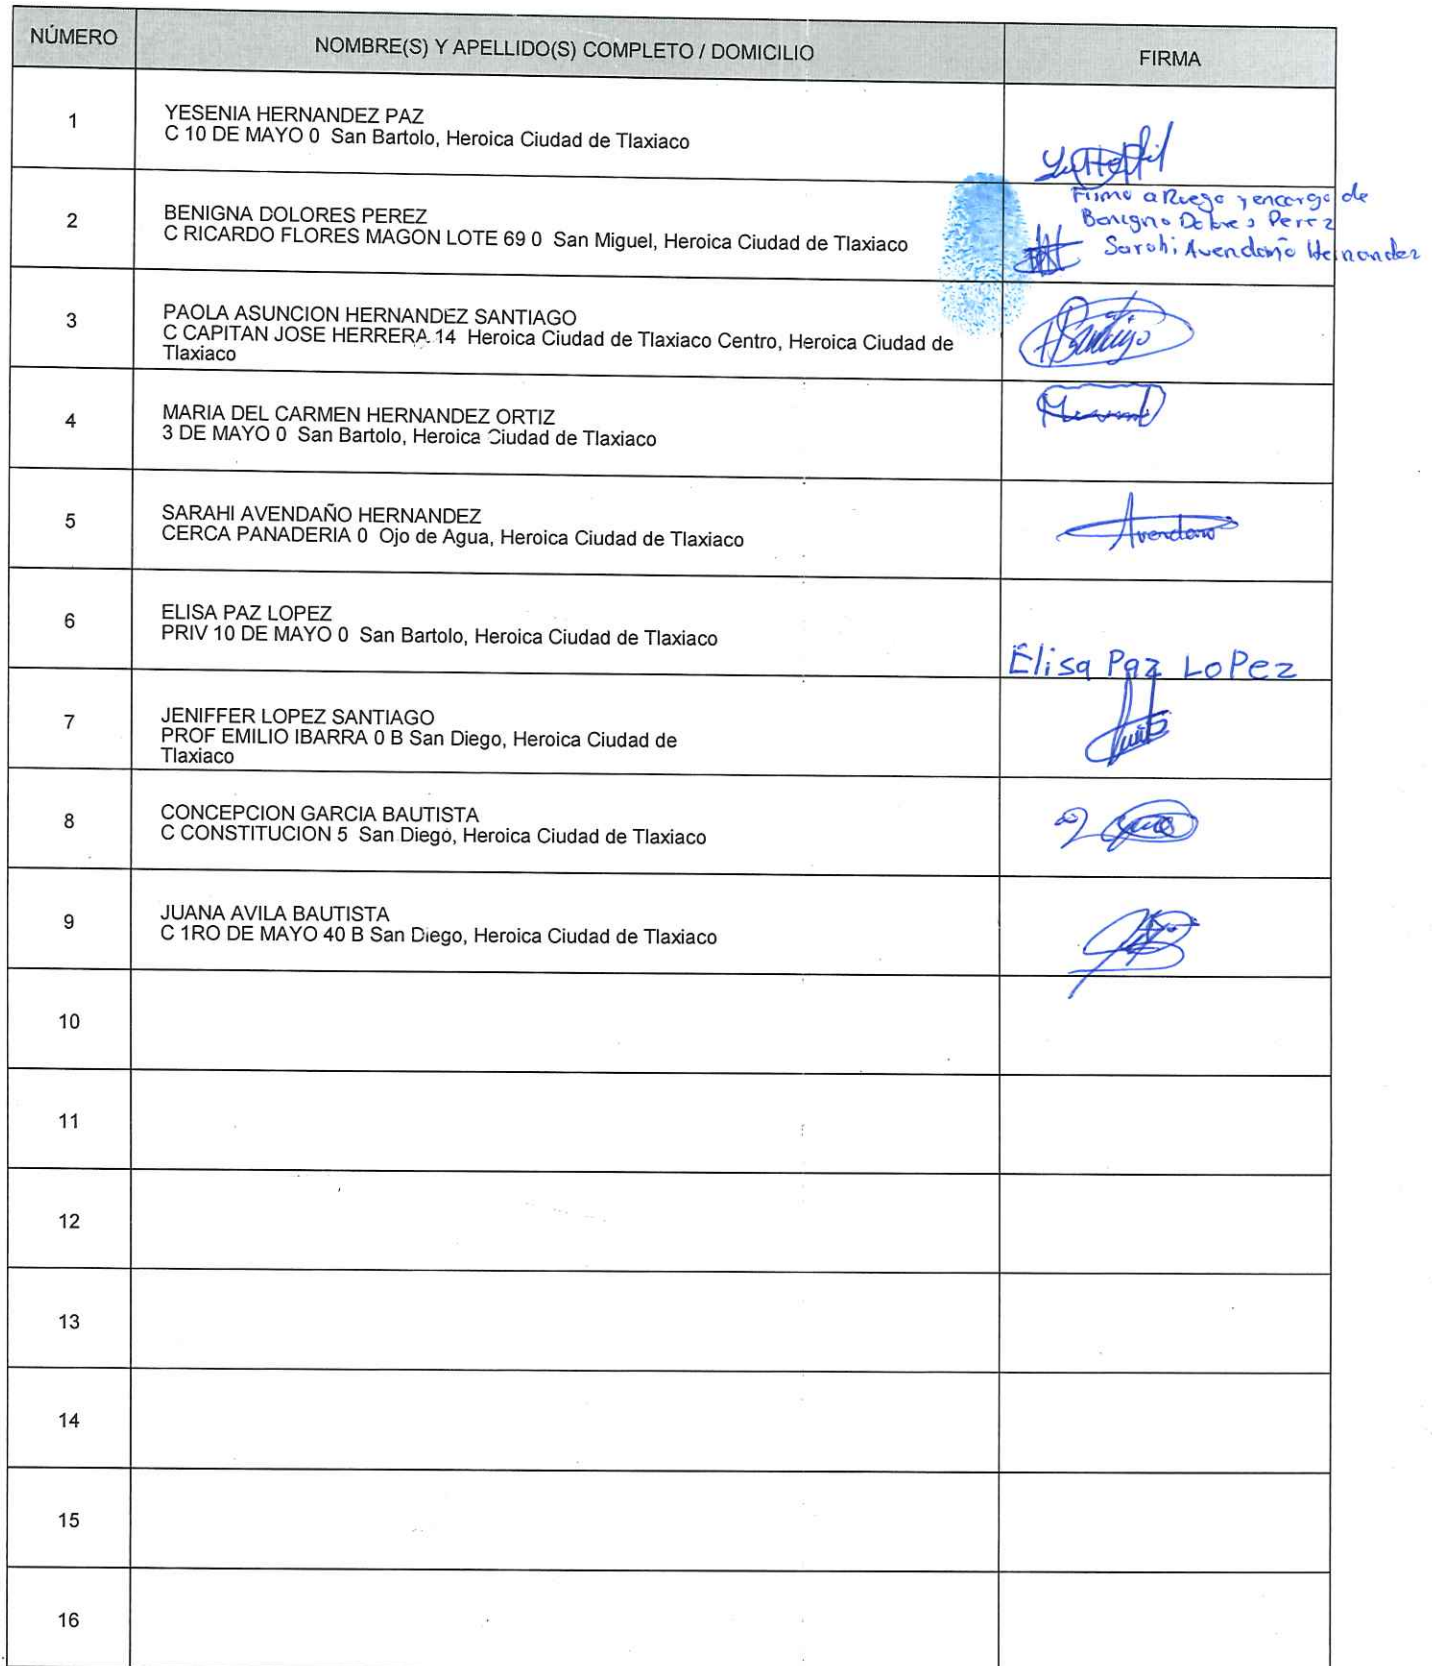 NÚMERO
NOMBRE(S) Y APELLIDO(S) COMPLETO / DOMICILIO
FIRMA
1
YESENIA HERNANDEZ PAZ
C 10 DE MAYO 0 San Bartolo, Heroica Ciudad de Tlaxiaco
2
BENIGNA DOLORES PEREZ
C RICARDO FLORES MAGON LOTE 69 0 San Miguel, Heroica Ciudad de Tlaxiaco
Firmo a Ruego y encargo de
Benigna Dolores Perez
Sarahi Avendaño Hernandez
3
PAOLA ASUNCION HERNANDEZ SANTIAGO
C CAPITAN JOSE HERRERA 14 Heroica Ciudad de Tlaxiaco Centro, Heroica Ciudad de
Tlaxiaco
4
MARIA DEL CARMEN HERNANDEZ ORTIZ
3 DE MAYO 0 San Bartolo, Heroica Ciudad de Tlaxiaco
5
SARAHI AVENDAÑO HERNANDEZ
CERCA PANADERIA 0 Ojo de Agua, Heroica Ciudad de Tlaxiaco
Avendano
6
ELISA PAZ LOPEZ
PRIV 10 DE MAYO 0 San Bartolo, Heroica Ciudad de Tlaxiaco
Elisa Paz LoPez
7
JENIFFER LOPEZ SANTIAGO
PROF EMILIO IBARRA 0 B San Diego, Heroica Ciudad de
Tlaxiaco
8
CONCEPCION GARCIA BAUTISTA
C CONSTITUCION 5 San Diego, Heroica Ciudad de Tlaxiaco
9
JUANA AVILA BAUTISTA
C 1RO DE MAYO 40 B San Diego, Heroica Ciudad de Tlaxiaco
10
11
12
13
14
15
16